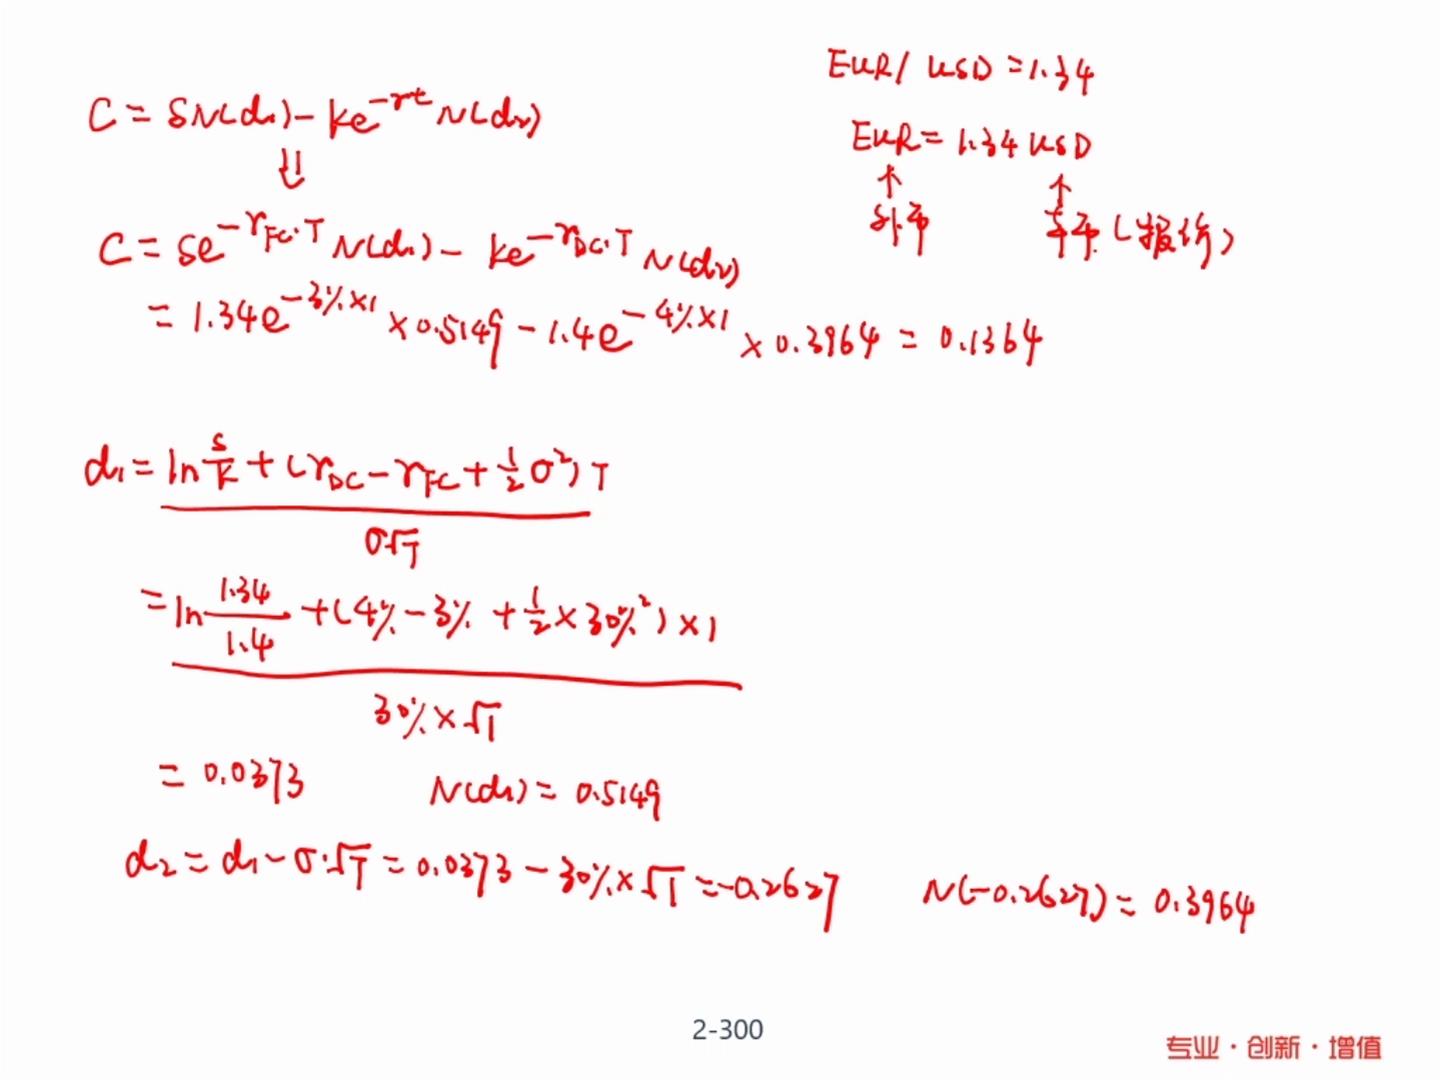 EUR/USD = 1.34
C = SN(d₁) - Ke^{-rt} N(d₂)
EUR = 1.34 USD
⇓
↑ ↑
外币 本币(报价)
C = Se^{-r_{FC}·T} N(d₁) - Ke^{-r_{DC}·T} N(d₂)
= 1.34e^{-3%×1} × 0.5149 - 1.4e^{-4%×1} × 0.3964 = 0.1364
d₁ = \frac{ln\frac{S}{K} + (r_{DC} - r_{FC} + \frac{1}{2}σ²)T}{σ√T}
= \frac{ln\frac{1.34}{1.4} + (4% - 3% + \frac{1}{2} × 30%²) × 1}{30% × √1}
= 0.0373 N(d₁) = 0.5149
d₂ = d₁ - σ·√T = 0.0373 - 30% × √1 = -0.2627 N(-0.2627) = 0.3964
2-300
专业·创新·增值